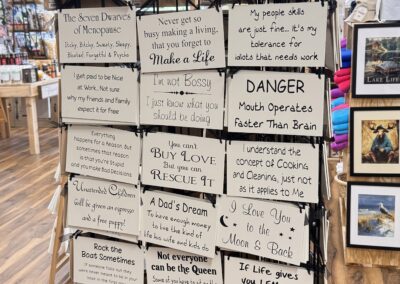 The Seven Dwarves of
Menopause
Itchy, Bitchy, Sweaty, Sleepy,
Bloated, Forgetful & Psycho
Never get so
busy making a living,
that you forget to
Make a Life
My people skills
are just fine... it's my
tolerance for
idiots that needs work
I get paid to be Nice
at Work.. Not sure
why my Friends and Family
expect it for Free
I'm not Bossy
I just know what
you should be doing
DANGER
Mouth Operates
faster Than Brain
Everything
happens for a Reason. But
sometimes that reason
is that you're stupid
and you make Bad Decisions
You can't
BUY LOVE
But you can
RESCUE IT
I understand the
concept of Cooking
and Cleaning, just not
as it applies to Me
Unattended Children
will be given an espresso
and a free puppy!
A Dad's Dream
To have enough money
to live the kind of
life his wife and kids do
I Love You to
the Moon & Back
Rock the
Boat Sometimes
If someone told you they
were never meant to be in
Not everyone
can be the Queen
If Life gives
you
LAKE LIFE